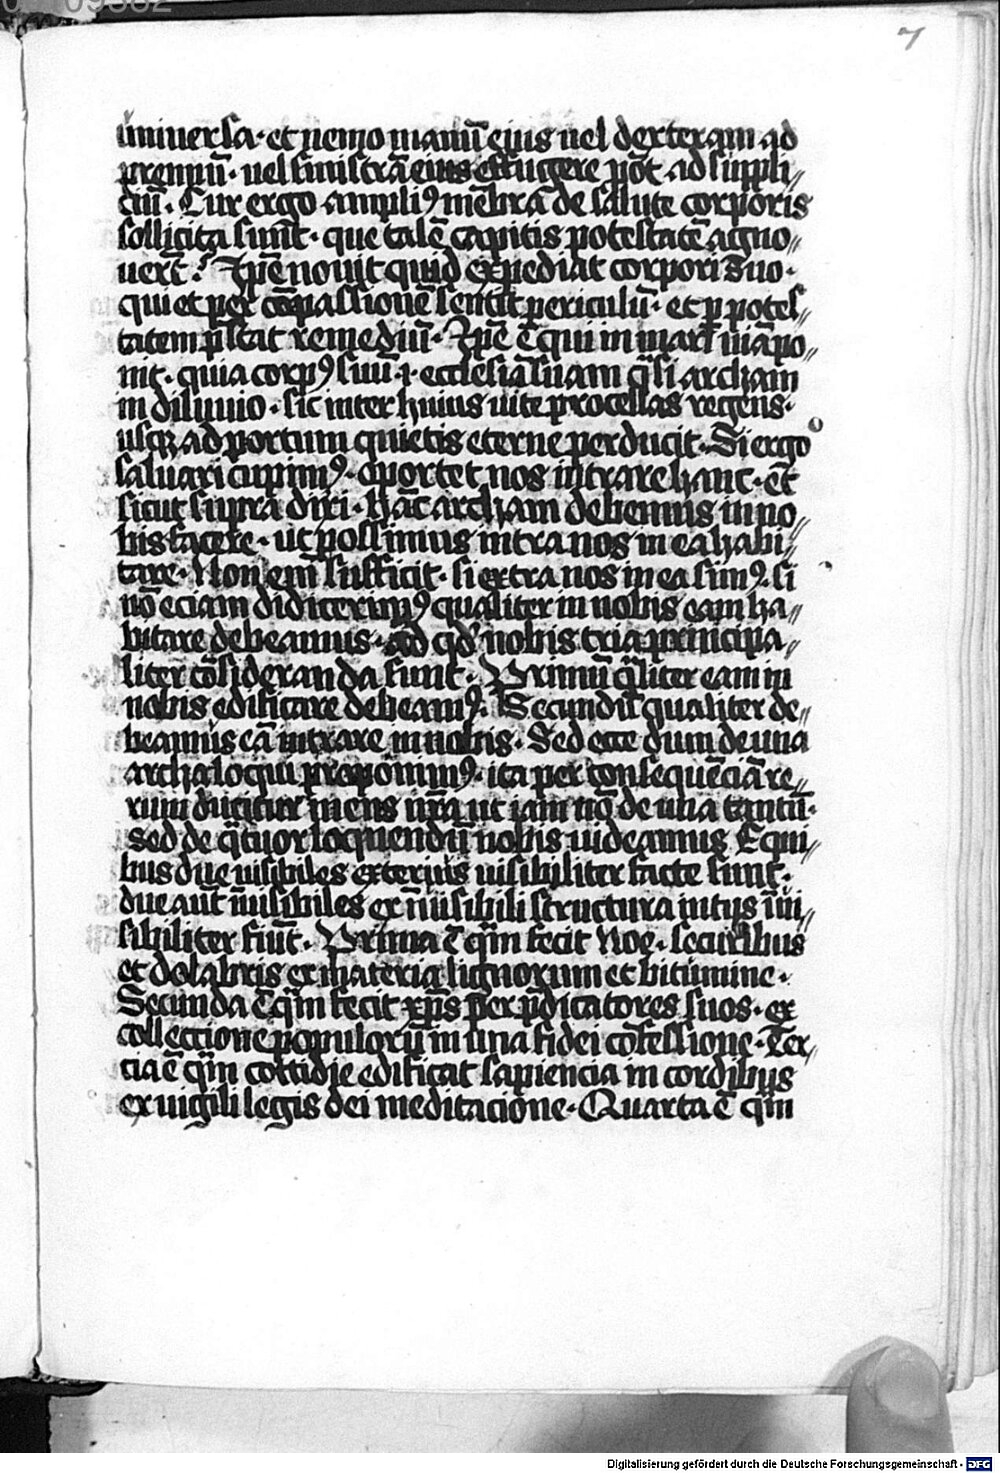 7
uniuersa · et nemo manū eius uel dexteram ad
premiū · uel sinistrā eius effugere pōt ad suppli〃
ciū · Cur ergo ampliꝰ mēbra de salute corporis
sollicita sunt · que talē capitis potestatē agno〃
uerūt ? Ipse nouit quid expediat corpori suo ·
qui et per cōpassionē sentit periculū · et ꝑ potes〃
tatem p̄stat remediū · Ipse ē qui in mari uiā po〃
nit · quia corpꝰ suū .i. ecclesiā suam q̄si archam
in diluuio · sic inter huius uite procellas regens ·
usqꝫ ad portum quietis eterne perducit · Si ergo
saluari cupimꝰ · oportet nos intrare hanc · et
sicut supra dixi · hāc archam debemus in no〃
bis facere · ut possimus intra nos in ea habi〃
tare · Non em̄ sufficit · si extra nos in ea simꝰ · si
nō eciam didicerimꝰ qualiter in nobis eam ha〃
bitare debeamus · ad qd̄ nobis tria principa〃
liter cōsideranda sunt · Primū q̄liter eam in
nobis edificare debeamꝰ · Secundū qualiter de〃
beamus eā intrare in nobis · Sed ecce dum de una
archa loqui proponimꝰ · ita per consequēciā re〃
rum ducitur mens nr̄a ut iam nō de una tantū ·
sed de q̄tuor loquendū nobis uideamus E qui〃
bus due uisibiles exterius uisibiliter facte sunt ·
due aut̄ īuisibiles ex īuisibili structura intus īui〃
sibiliter fiūt · Prima ē qm̄ fecit Noe · securibus
et dolabris ex materia lignorum et bitumine ·
Secunda ē qm̄ fecit xp̄s per p̄dicatores suos · ex
collectione populorū in una fidei cōfessione · Ter〃
cia ē qm̄ cottidie edificat sapiencia in cordibus
ex uigili legis dei meditacione · Quarta ē qm̄
Digitalisierung gefördert durch die Deutsche Forschungsgemeinschaft - DFG